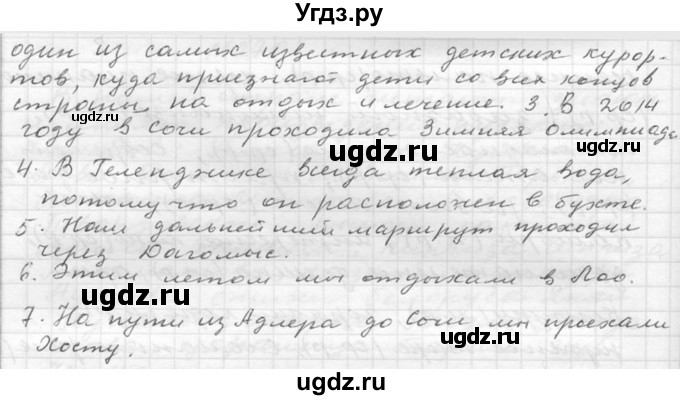 Угдз.ру
один из самых известных детских курор-
тов, куда приезжают дети со всех концов
страны на отдых и лечение. 3. В 2014
году в Сочи проходила Зимняя Олимпиада
4. В Геленджике всегда теплая вода,
потому что он расположен в бухте.
5. Наш дальнейший маршрут проходил
через Дагомыс.
6. Этим летом мы отдыхали в Лоо.
7. На пути из Адлера до Сочи мы проехали
Хосту.
ugdz.ru